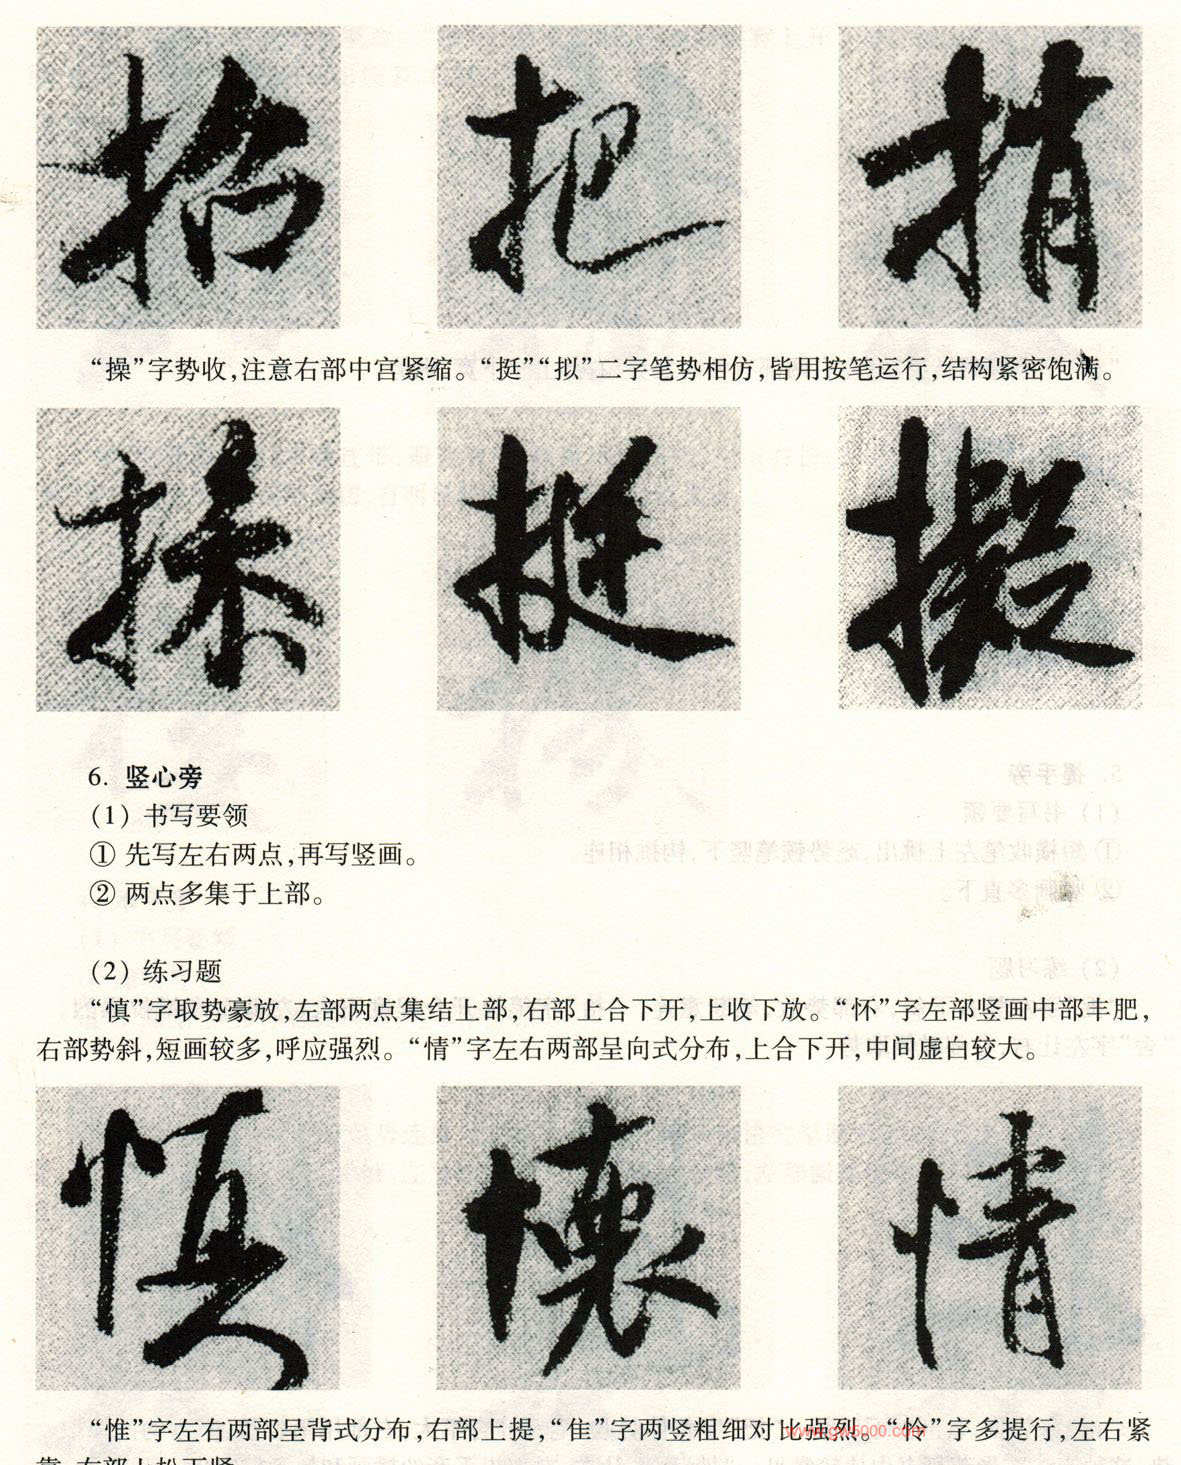 招 把 捎
“操”字势收,注意右部中宫紧缩。“挺”“拟”二字笔势相仿,皆用按笔运行,结构紧密饱满。
操 挺 擬
6. 竖心旁
(1) 书写要领
① 先写左右两点,再写竖画。
② 两点多集于上部。
(2) 练习题
“慎”字取势豪放,左部两点集结上部,右部上合下开,上收下放。“怀”字左部竖画中部丰肥,
右部势斜,短画较多,呼应强烈。“情”字左右两部呈向式分布,上合下开,中间虚白较大。
慎 懷 情
“惟”字左右两部呈背式分布,右部上提,“隹”字两竖粗细对比强烈。“怜”字多提行,左右紧
www.gw5000.com